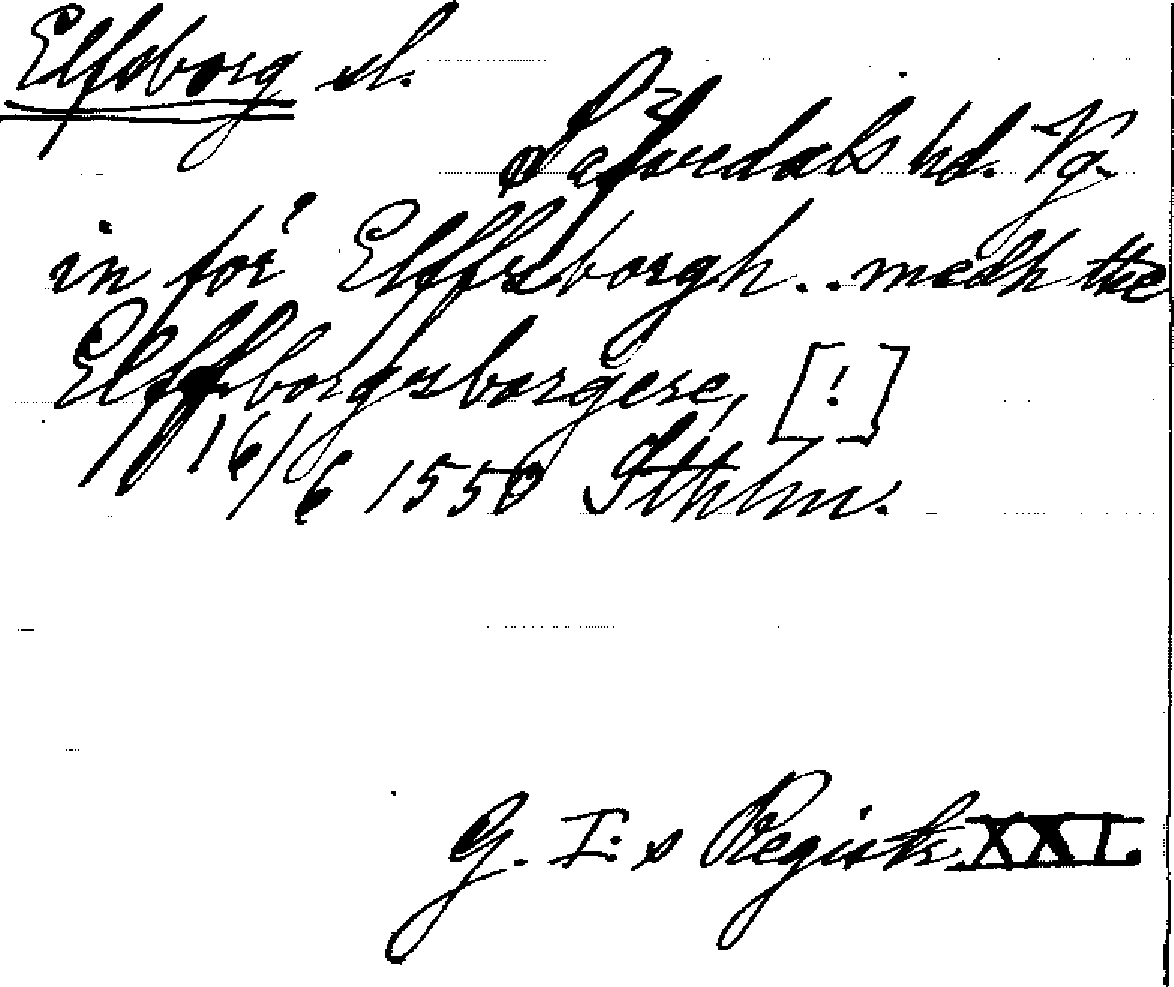 Elfsborg sl.
Sävedals hd. Vg.
in för Elffsborgh..medh the
Elffborgsborgere, [!]
16/6 1550 Sthlm.
G. I:s Registr. XXI.